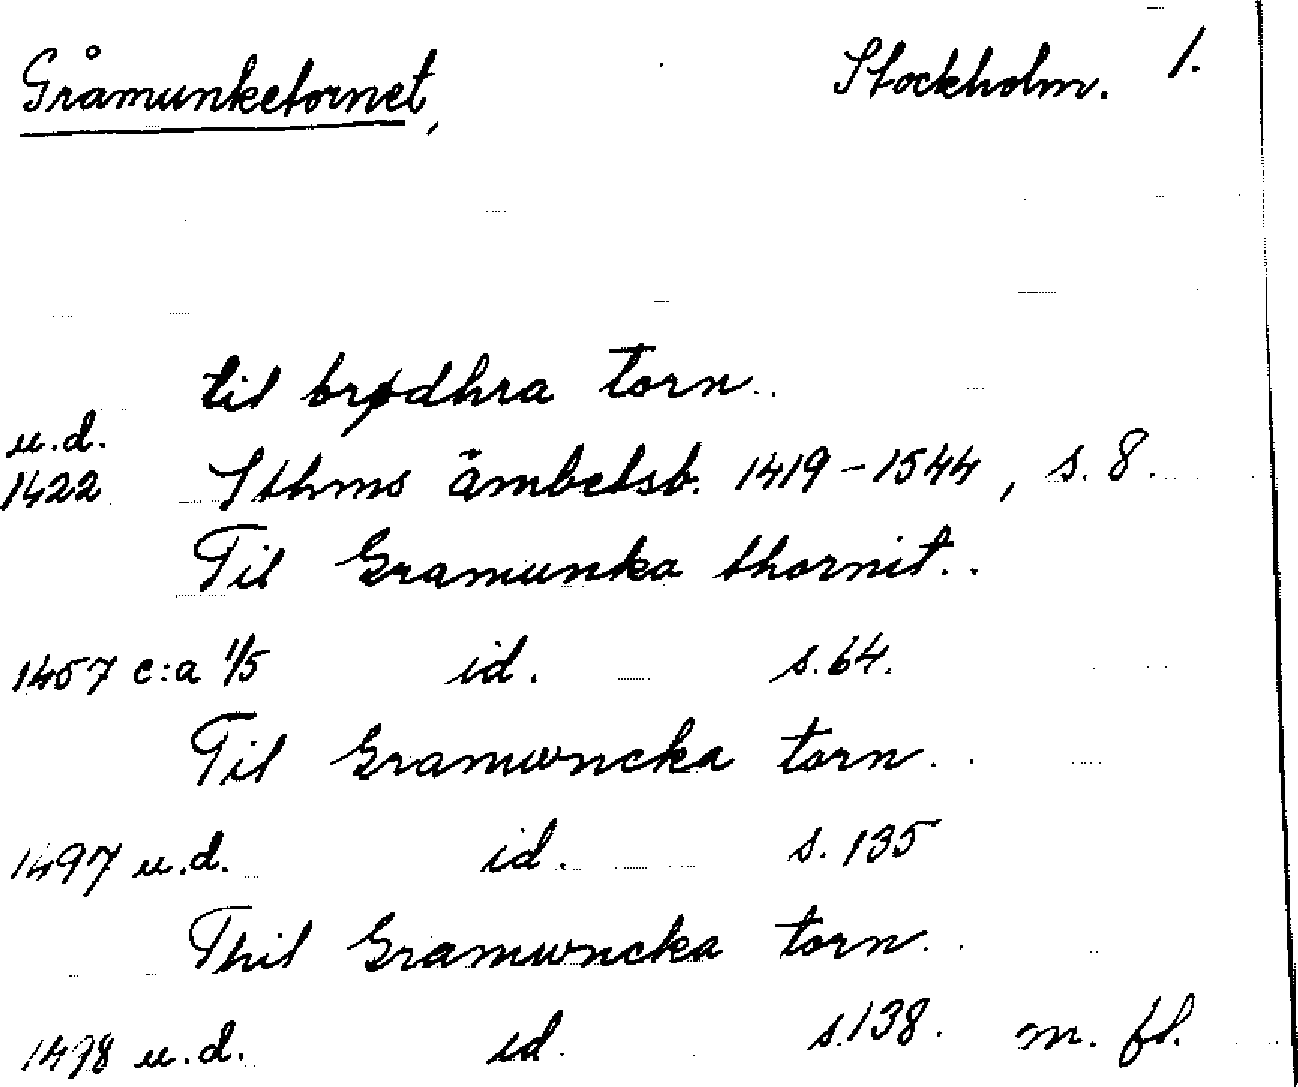 Gråmunketornet, Stockholm. 1.
til brødhra torn..
u.d.
1422 Sthms ämbetsb. 1419-1544, s. 8.
Til Gramunka thornit..
1457 c:a 1/5 id. s. 64.
Til Gramwncka torn..
1497 u.d. id. s. 135
Thil Gramwncka torn..
1498 u.d. id. s. 138. m. fl.